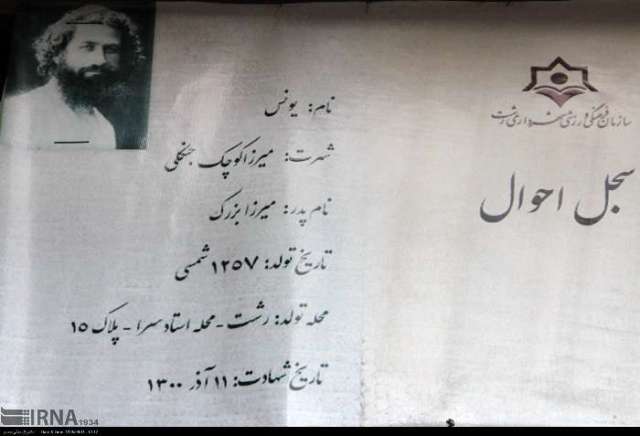 سازمان فرهنگی و ورزشی شهرداری رشت
سجل احوال
نام: یونس
شهرت: میرزا کوچک جنگلی
نام پدر: میرزا بزرگ
تاریخ تولد: ۱۲۵۷ شمسی
محله تولد: رشت - محله استادسرا - پلاک ۱۵
تاریخ شهادت: ۱۱ آذر ۱۳۰۰
IRNA 1934